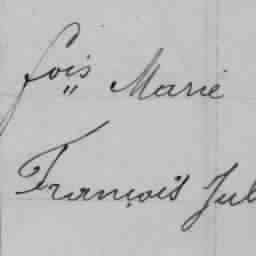 fois Marie
François Jul